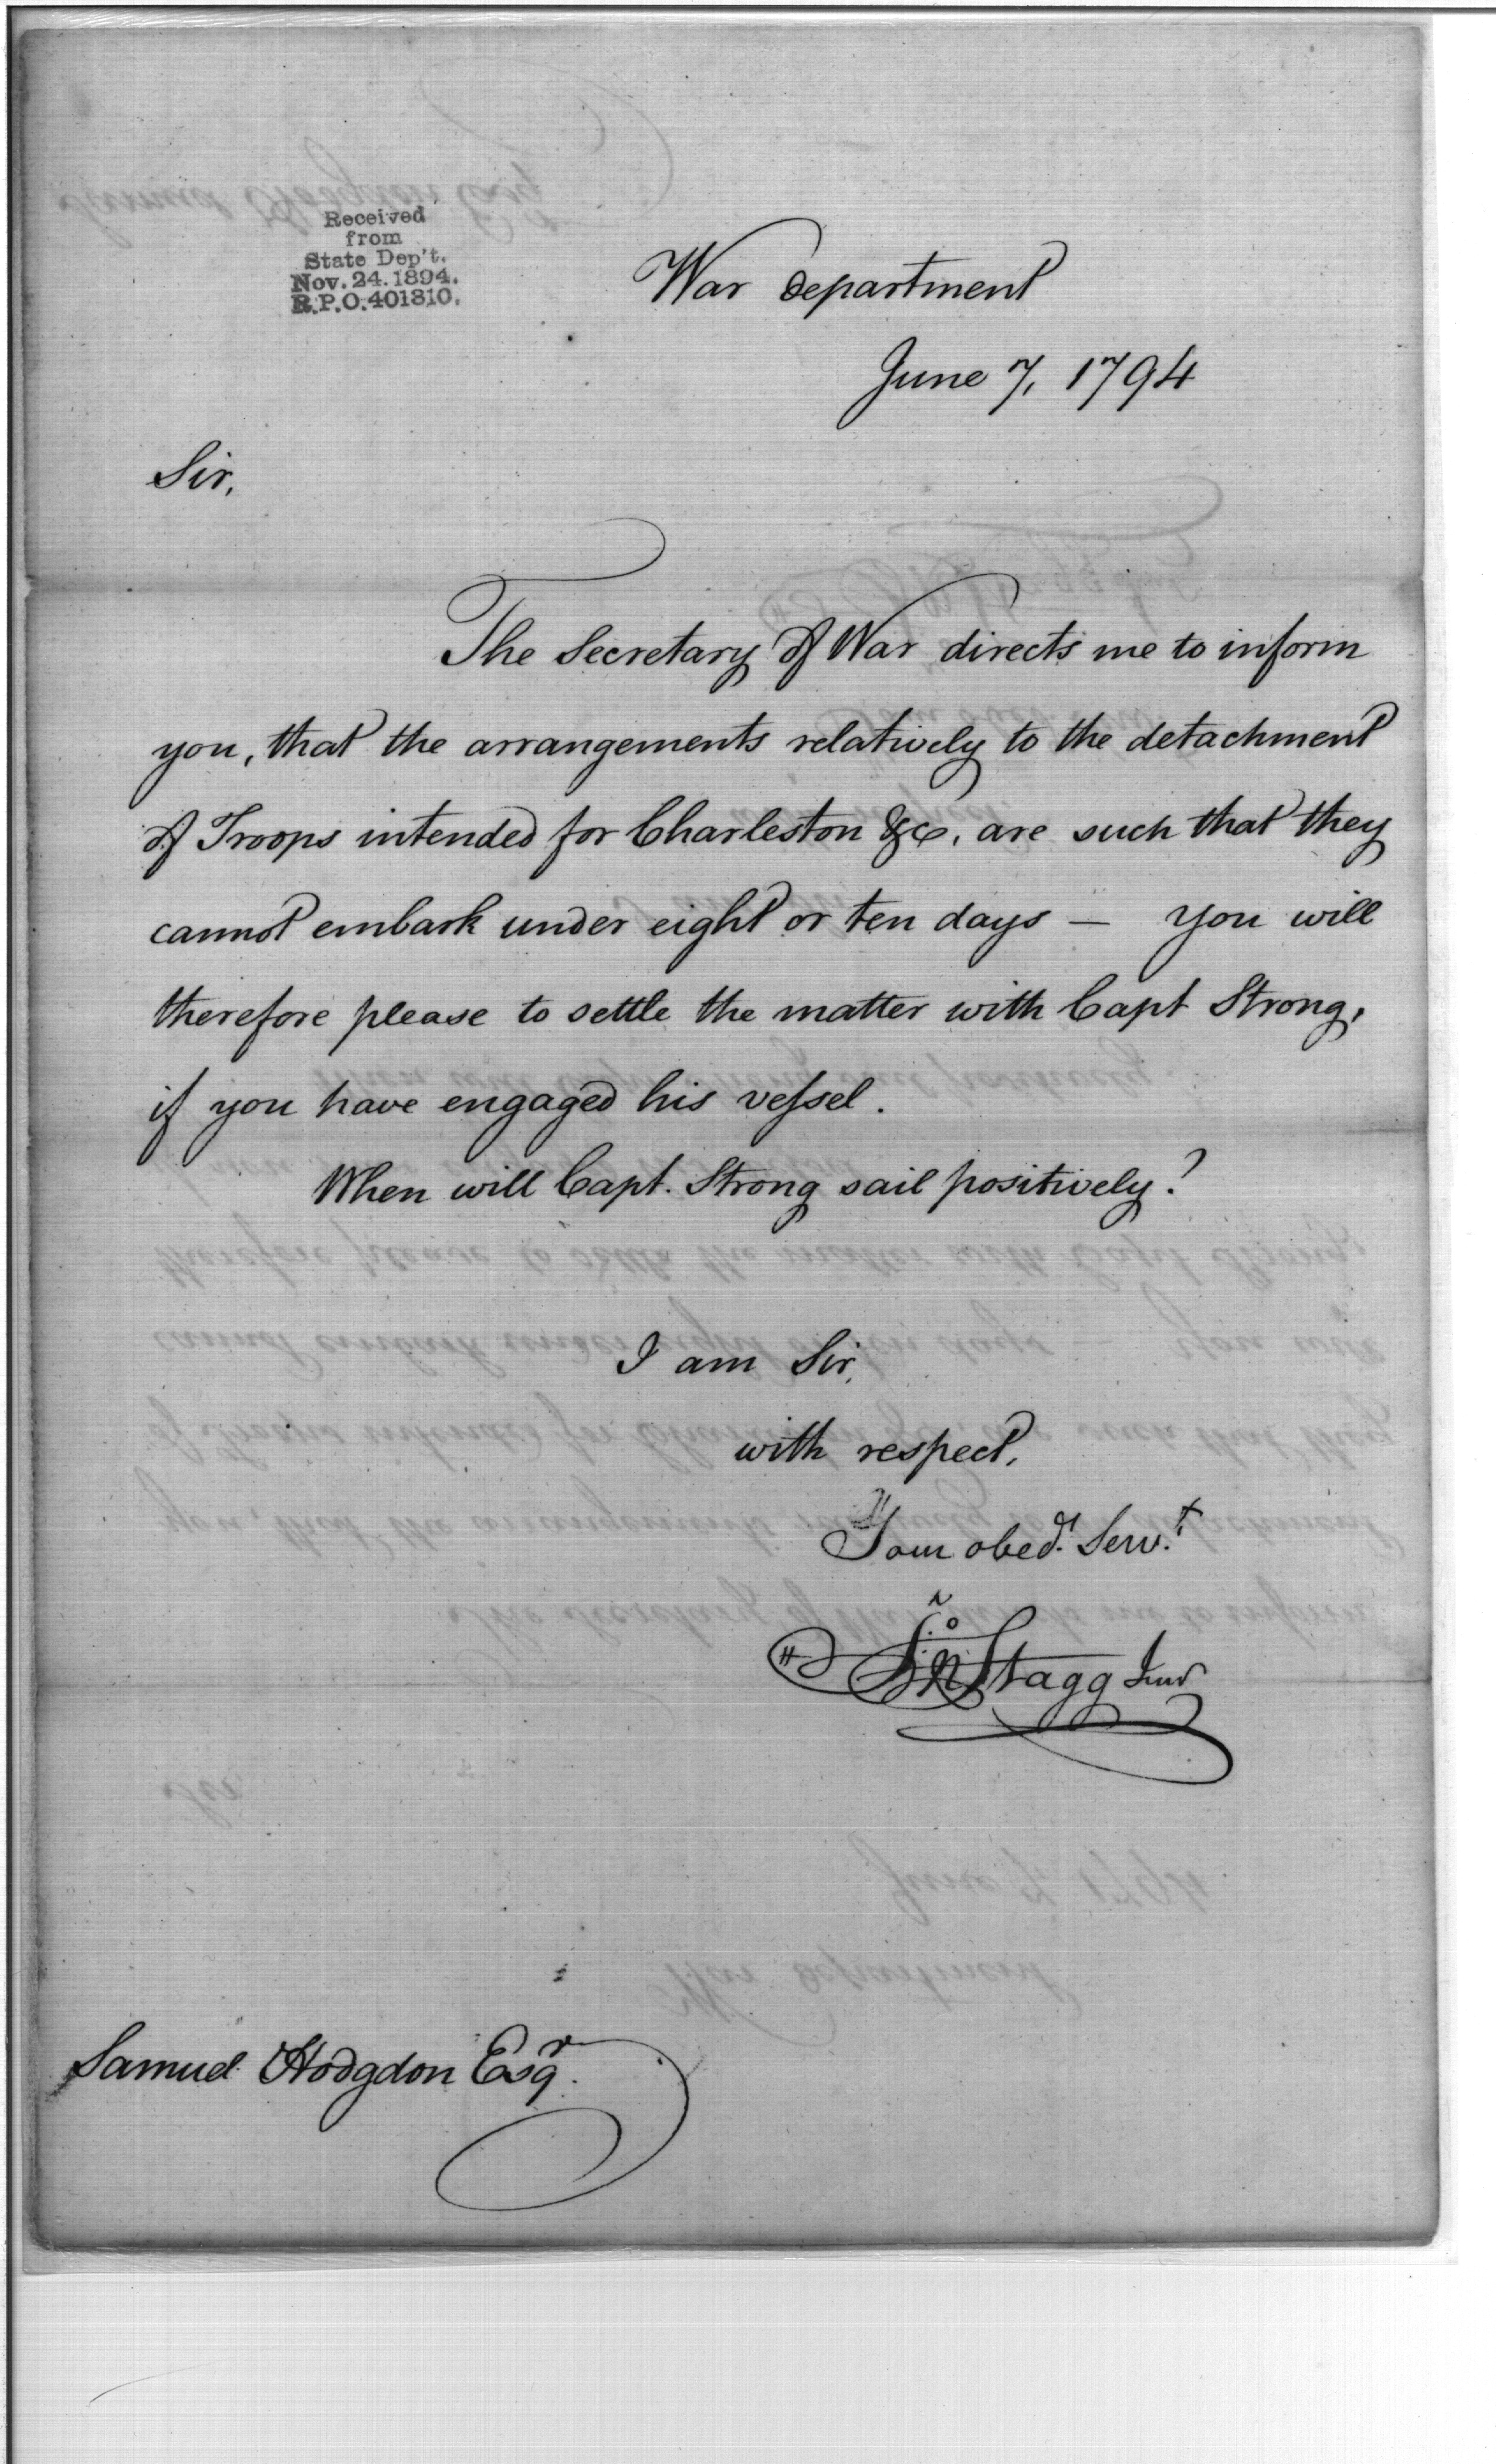 Received
from
State Dep't.
Nov. 24. 1894.
R.P.O. 401810.
War department
June 7, 1794
Sir,
The Secretary of War directs me to inform
you, that the arrangements relatively to the detachment
of Troops intended for Charleston &c, are such that they
cannot embark under eight or ten days — you will
therefore please to settle the matter with Capt Strong,
if you have engaged his veſsel.
When will Capt. Strong sail positively?
I am Sir,
with respect,
Your obed.t Serv.t
Jno Stagg Junr
Samuel Hodgdon Esqr.